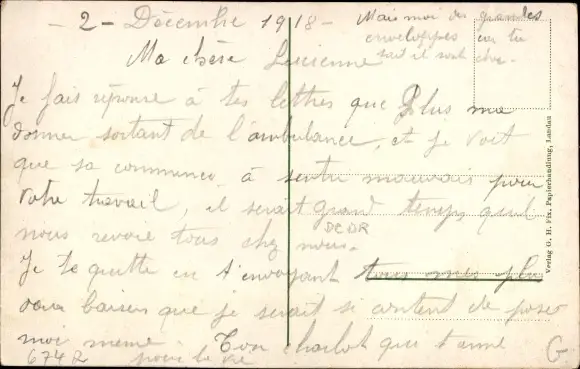 - 2 - Décembre 1918 -
Mais moi des grandes
enveloppes
Ma chère Lucienne
Je fais réponse à tes lettres que Plus me
donner sortant de l'ambulance, et je voit
que sa commence à sentir mauvais pour
votre travail, il serait grand temps quil
nous revoir tous chez nous.
Je te quitte en t'envoyant tous mes plus
doux baiser que je serait si contend de poser
moi meme. Ton charlot qui t'aime
pour la vie
6742
G
Verlag G. H. Fix, Papierhandlung, Landau